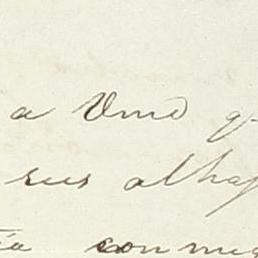 a Vmd q
sus alhaj
ia conmig